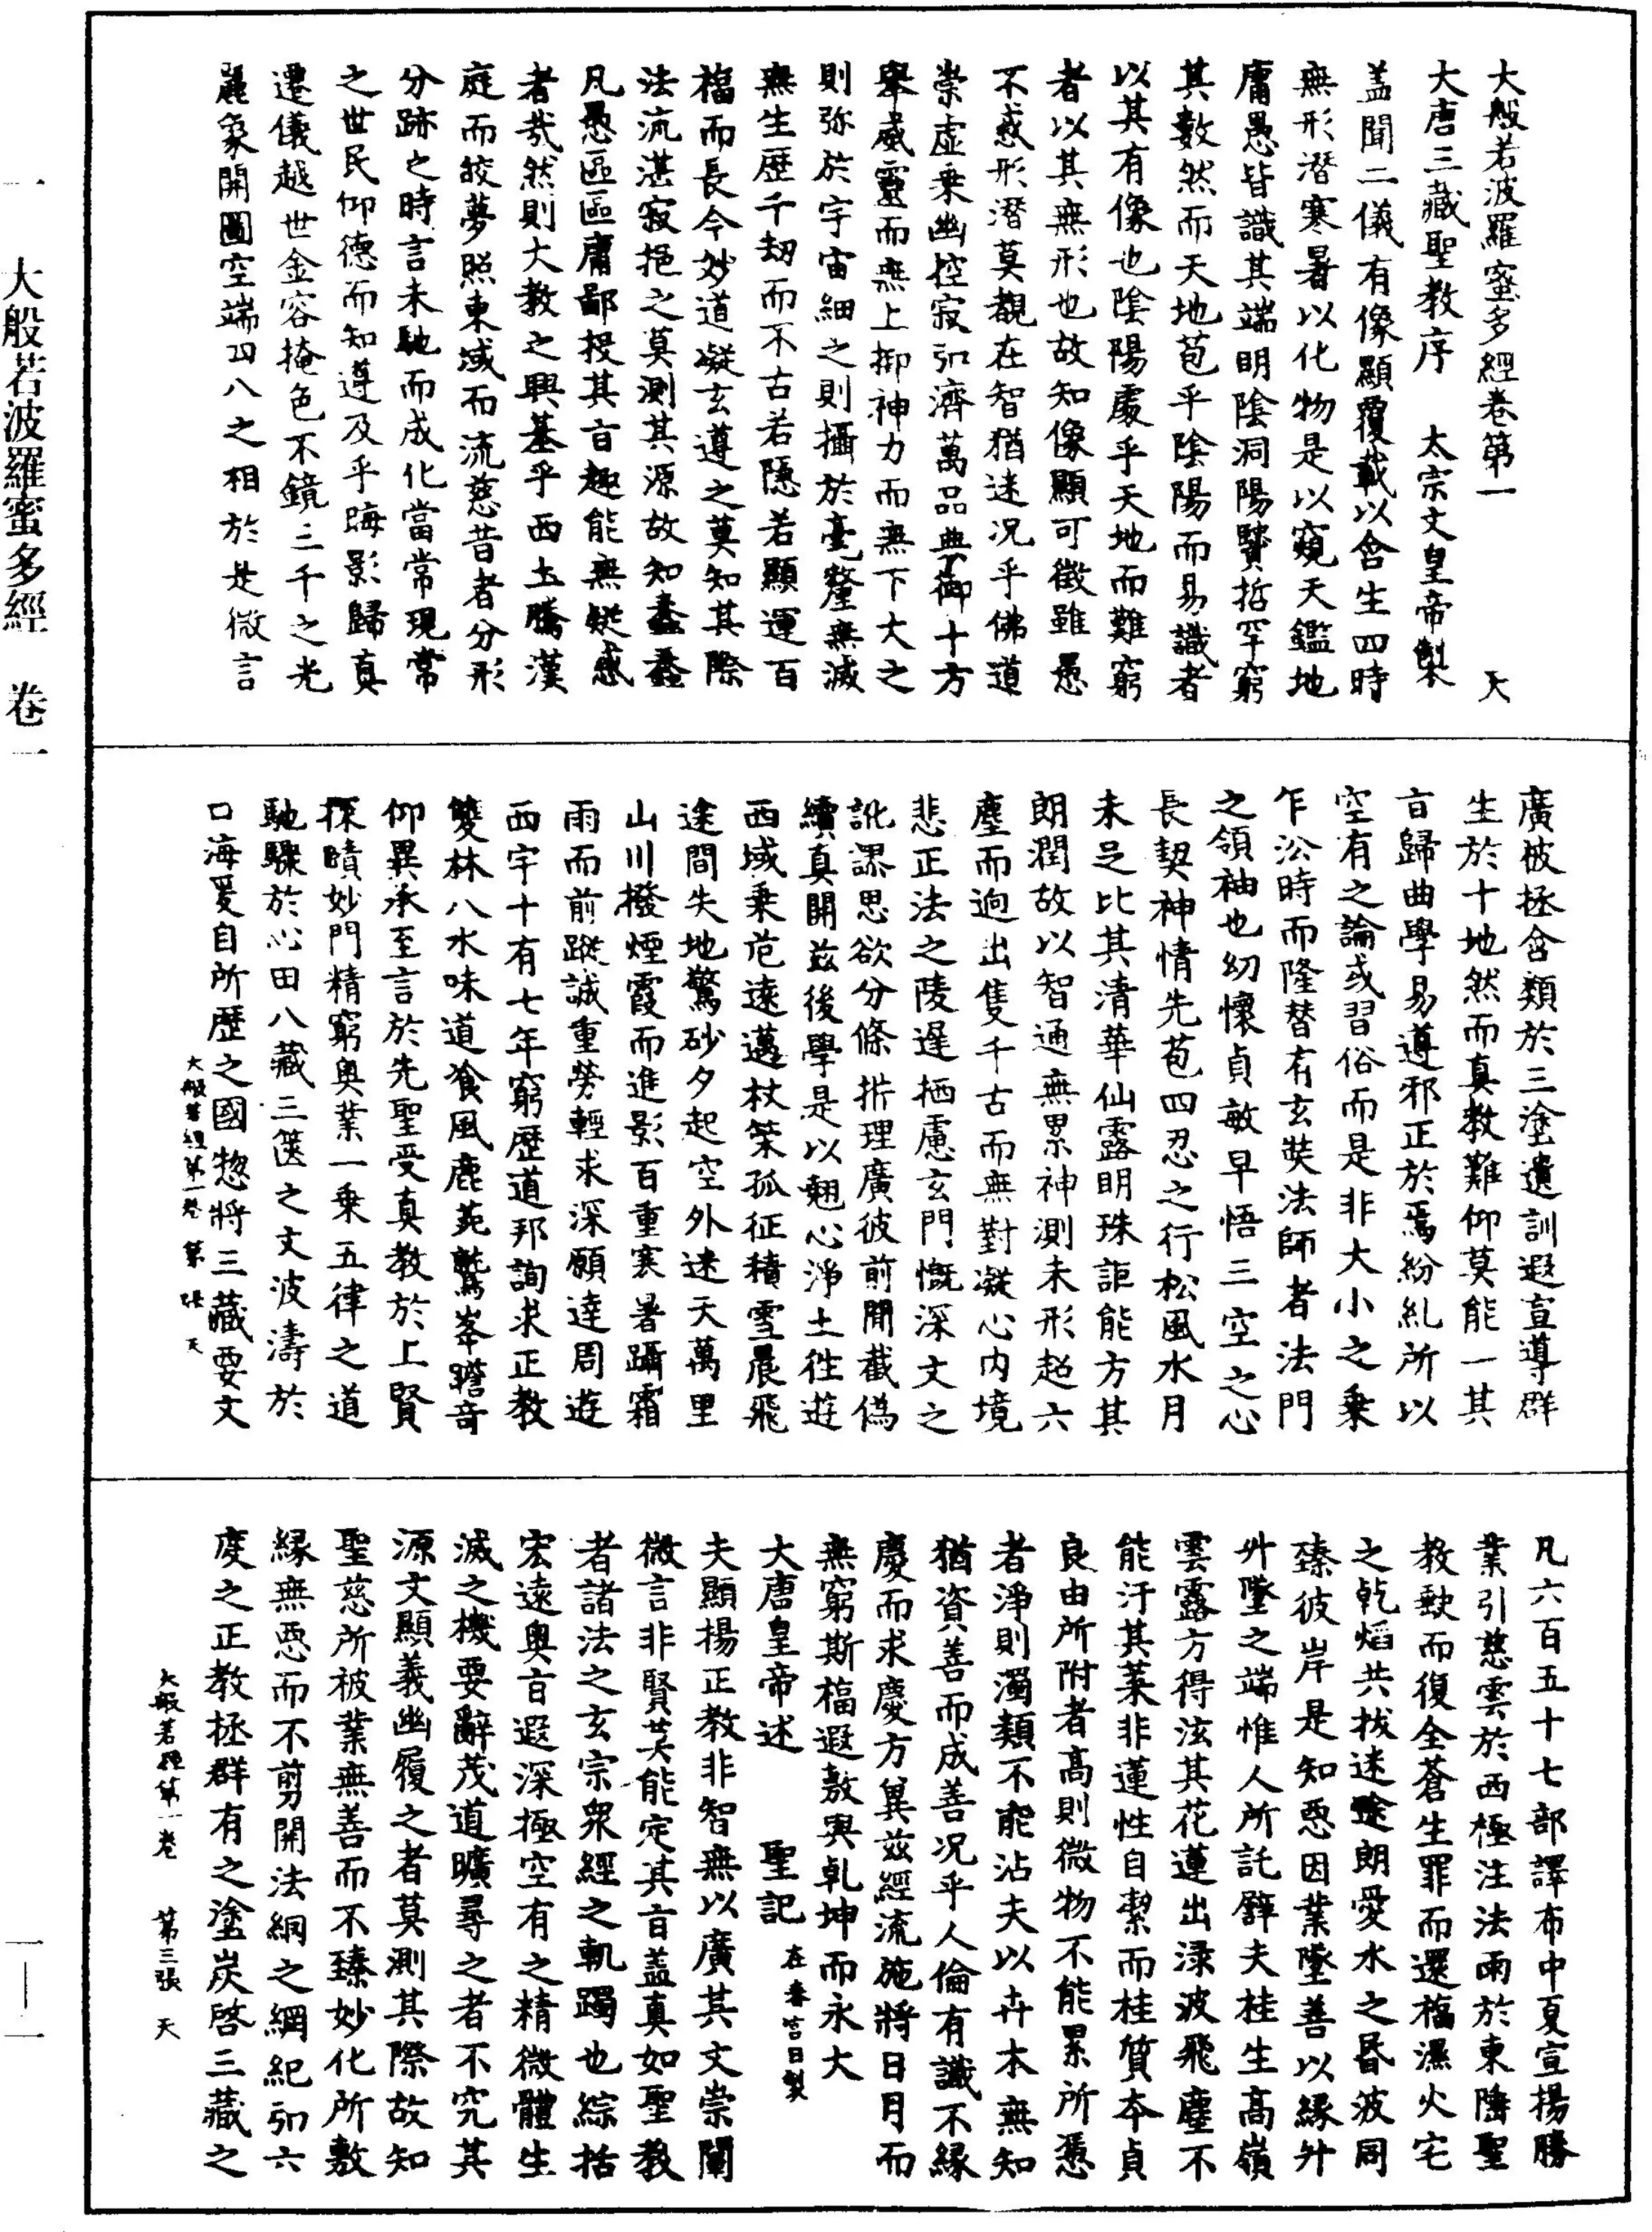 大般若波羅蜜多經卷第一 天
大唐三藏聖教序 太宗文皇帝製
盖聞二儀有像顯覆載以含生四時
無形潛寒暑以化物是以窺天鑑地
庸愚皆識其端明陰洞陽賢哲罕窮
其數然而天地苞乎陰陽而易識者
以其有像也陰陽處乎天地而難窮
者以其無形也故知像顯可徵雖愚
不惑形潛莫覩在智猶迷況乎佛道
崇虛乘幽控寂弘濟萬品典御十方
舉威靈而無上抑神力而無下大之
則弥於宇宙細之則攝於毫釐無滅
無生歷千劫而不古若隱若顯運百
福而長今妙道凝玄遵之莫知其際
法流湛寂挹之莫測其源故知蠢蠢
凡愚區區庸鄙投其旨趣能無疑惑
者哉然則大教之興基乎西土騰漢
庭而皎夢照東域而流慈昔者分形
分跡之時言未馳而成化當常現常
之世民仰德而知遵及乎晦影歸真
遷儀越世金容掩色不鏡三千之光
麗象開圖空端四八之相於是微言
廣被拯含類於三塗遺訓遐宣導群
生於十地然而真教難仰莫能一其
旨歸曲學易遵邪正於焉紛糺所以
空有之論或習俗而是非大小之乘
乍沿時而隆替有玄奘法師者法門
之領袖也幼懷貞敏早悟三空之心
長契神情先苞四忍之行松風水月
未足比其清華仙露明珠詎能方其
朗潤故以智通無累神測未形超六
塵而逈出隻千古而無對凝心內境
悲正法之陵遲栖慮玄門慨深文之
訛謬思欲分條析理廣彼前聞截偽
續真開茲後學是以翹心淨土往遊
西域乘危遠邁杖策孤征積雪晨飛
途間失地驚砂夕起空外迷天萬里
山川撥煙霞而進影百重寒暑躡霜
雨而前蹤誠重勞輕求深願達周遊
西宇十有七年窮歷道邦詢求正教
雙林八水味道飡風鹿菀鷲峯瞻奇
仰異承至言於先聖受真教於上賢
探賾妙門精窮奥業一乘五律之道
馳驟於心田八藏三篋之文波濤於
口海爰自所歷之國惣將三藏要文
大般若經第一卷 第 張 天
凡六百五十七部譯布中夏宣揚勝
業引慈雲於西極注法雨於東陲聖
教缺而復全蒼生罪而還福濕火宅
之乾焰共拔迷途朗愛水之昏波同
臻彼岸是知惡因業墜善以緣升
升墜之端惟人所託譬夫桂生高嶺
雲露方得泫其花蓮出渌波飛塵不
能汙其葉非蓮性自潔而桂質本貞
良由所附者高則微物不能累所憑
者淨則濁類不能沾夫以卉木無知
猶資善而成善況乎人倫有識不緣
慶而求慶方冀茲經流施將日月而
無窮斯福遐敷與乹坤而永大
大唐皇帝述 聖記 在春宮日製
夫顯揚正教非智無以廣其文崇闡
微言非賢莫能定其旨盖真如聖教
者諸法之玄宗衆經之軌躅也綜括
宏遠奥旨遐深極空有之精微體生
滅之機要辭茂道曠尋之者不究其
源文顯義幽履之者莫測其際故知
聖慈所被業無善而不臻妙化所敷
緣無惡而不剪開法網之綱紀弘六
度之正教拯群有之塗炭啓三藏之
大般若經第一卷 第三張 天
一 大般若波羅蜜多經 卷一
一—一